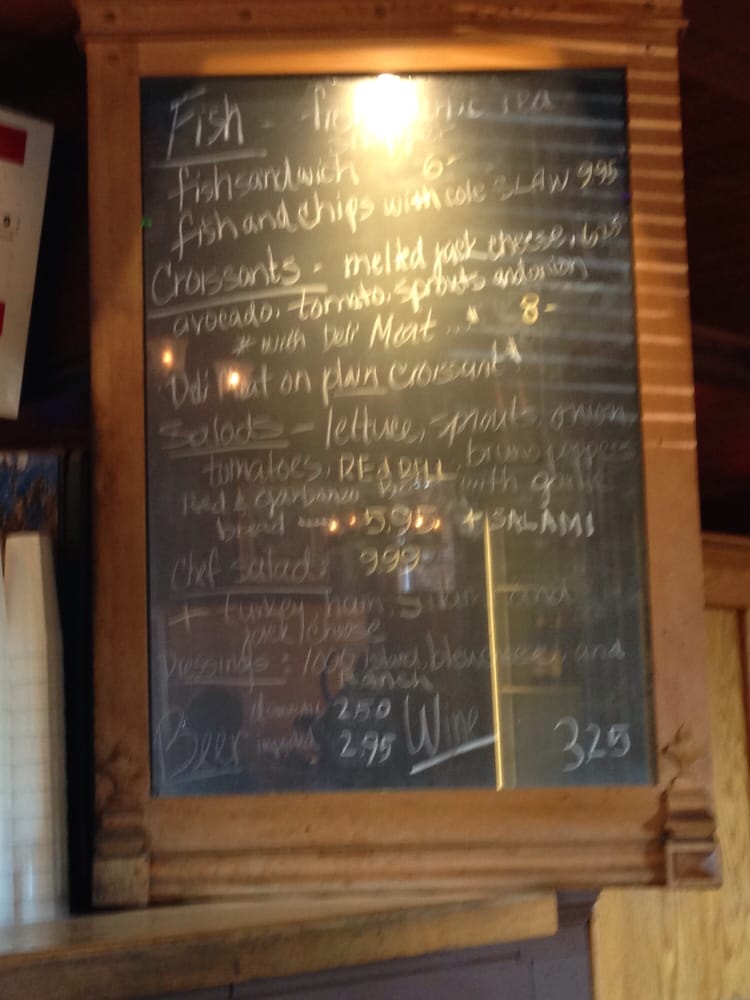 Fish - sea
fishsandwich 6-
fish and chips with cole SLAW 995
Croissants - melted jack cheese, 625
avocado, tomato, sprouts and onion
* with Deli Meat ... * 8-
Deli Meat on plain Croissant
Salads - lettuce, sprouts, onion,
tomatoes, RED BELL, peppers
Red & garbanzo with garlic
bread 5.95 + SALAMI
Chef salad 9.99
+ turkey, ham, and
jack/cheese
Dressings: 1000 island, and
Ranch
Beer 250 Wine 325
imported 295